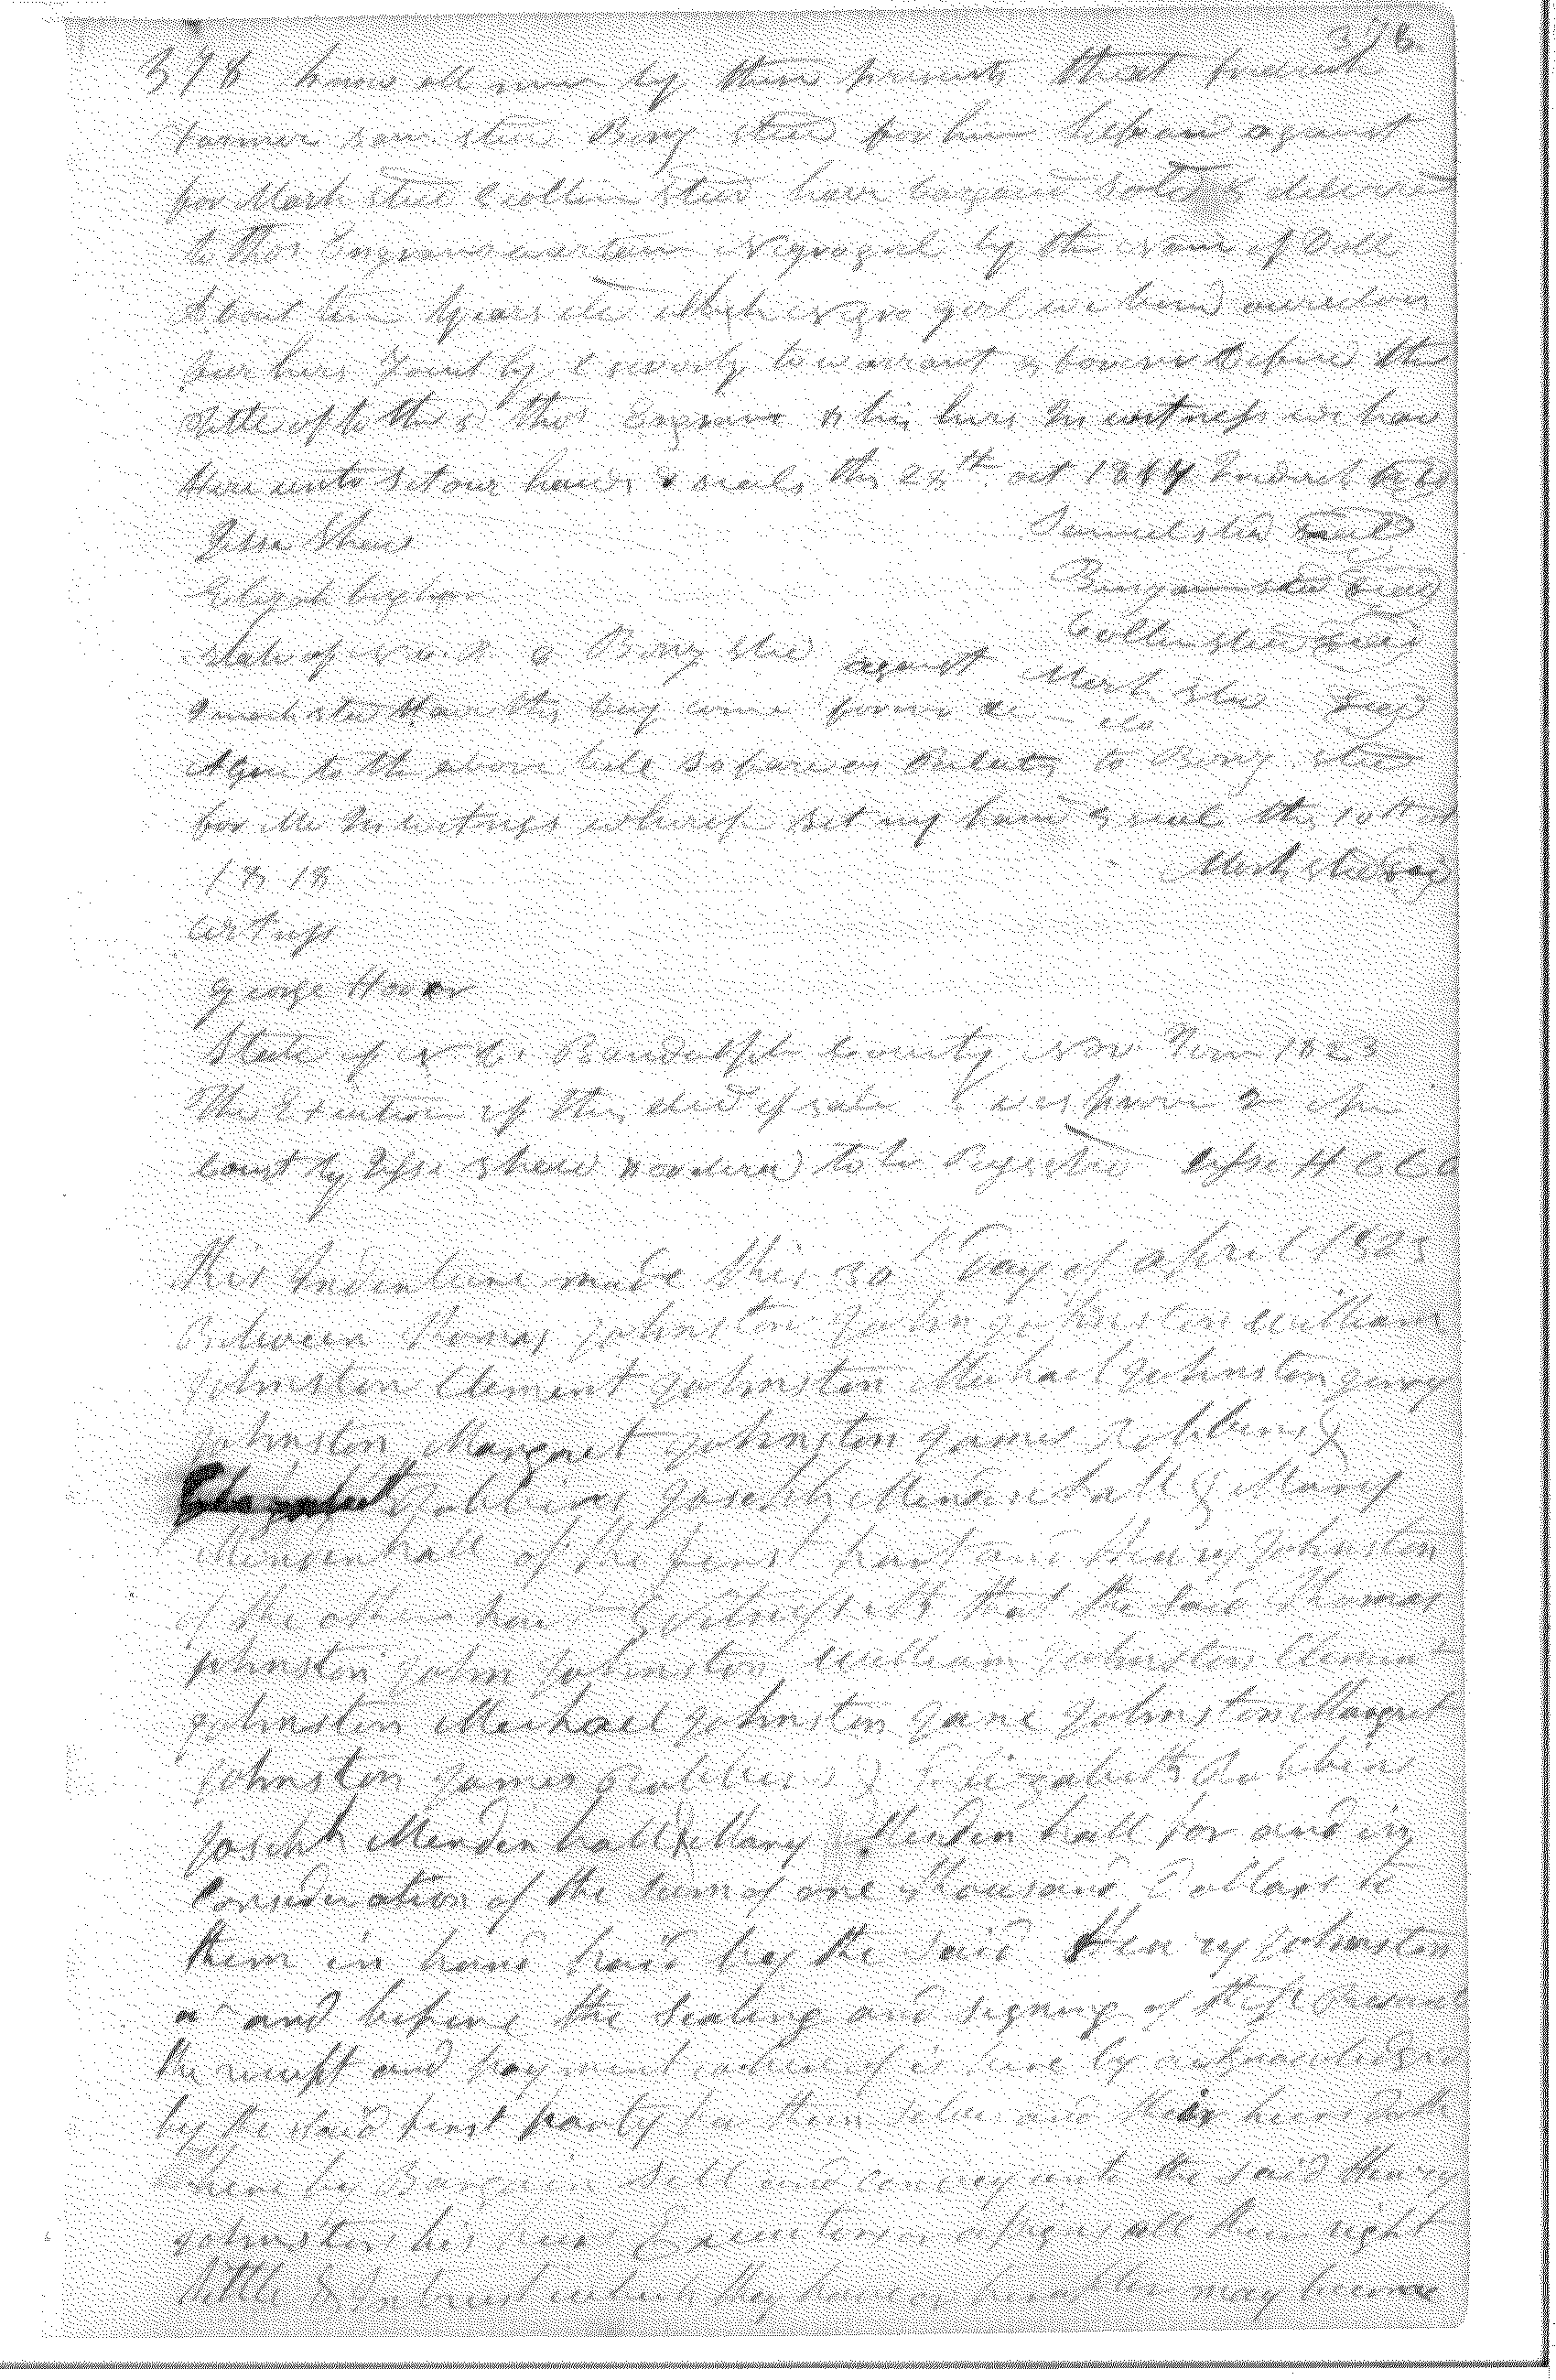 378
378 know all men by these presents that Fredrick
farmer Sam Steed Benj Steed for him self and against
for Mark Steed & Collin Steed have bargand Sold & delivered
to Thos a certain Negro girl by the Name of Doll
About ten Years old which Negro girl we bind ourselves
our heirs Jointly & severly to warrant & forever Defend the
title of to the s Thos & his heirs In witness we have
Here unto Set our hands & seals this 28th oct 1814 Fredrick
Jesse Shaw Samuel Steed Seal
Elijah Benjamin Steed Seal
Collin Steed Seal
State of N. C. Benj Steed against Mark Steed Seal
Mark Steed this Day come
Agree to the above bill So far as Relates to Benj Steed
for Me In witness whereof set my hand & seal this 10th
1818 Mark Steed Seal
witness
George Hoover
State of N C. Randolph County Nov Term 1823
The Execution of this deed of sale was proven In open
Court by Jesse & ordered to be Jesse H C C C
this Indenture made this 30th Day of april 1823
Between Thomas Johnston John Johnston William
Johnston Clement Johnston Michael Johnston
Johnston Margaret Johnston James Robbins &
Robbins Joseph Mendenhall & Mary
Mendenhall of the first part and Henry Johnston
of the other part Witnesseth that the said Thomas
Johnston John Johnston William Johnston Clement
Johnston Michael Johnston Jane Johnston Margret
Johnston James Robbins & Elizabeth Robbins
Joseph Menden hall & Mary Menden hall for and in
Consideration of the sum of one thousand Dollars to
them in hand paid by the said Henry Johnston
at and before the Sealing and signing of these presents
the receipt and payment whereof is here by acknowledged
by the said first party for them selves and their heirs doth
here by Bargain Sell and convey unto the said Henry
Johnston his heirs Executors or assigns all their right
tittle & Interest which they have or hereafter may become